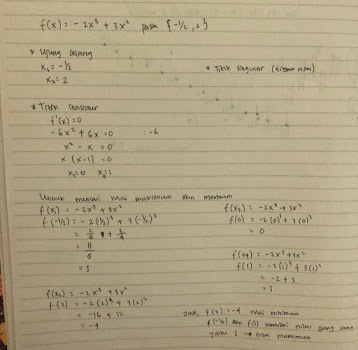 f(x) = -2x³ + 3x² pada {-1/2, 2}
* Ujung Selang
x₁ = -1/2
x₂ = 2
* Titik Singular (tidak ada)
* Titik Stasioner
f'(x) = 0
-6x² + 6x = 0 : -6
x² - x = 0
x (x-1) = 0
x₃=0 x₄=1
Untuk mencari nilai maksimum dan minimum
f(x₁) = -2x³ + 3x²
f(-1/2) = -2(-1/2)³ + 3(-1/2)²
= 2/8 + 3/4
= 8/8
= 1
f(x₂) = -2x³ + 3x²
f(2) = -2(2)³ + 3(2)²
= -16 + 12
= -4
f(x₃) = -2x³ + 3x²
f(0) = -2(0)³ + 3(0)²
= 0
f(x₄) = -2x³ + 3x²
f(1) = -2(1)³ + 3(1)²
= -2 + 3
= 1
Jadi, f(2) = -4 nilai minimum
f(-1/2) dan f(1) memiliki nilai yang sama
yaitu 1 → nilai maksimum